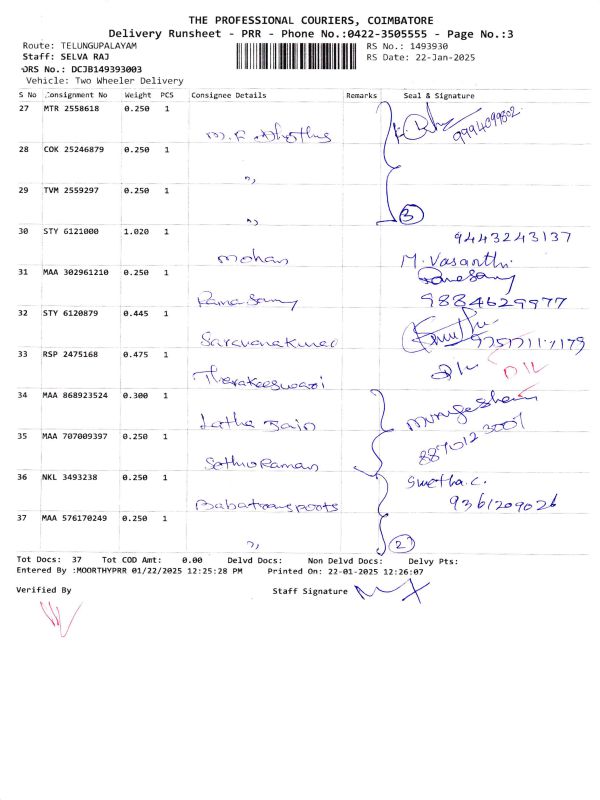 THE PROFESSIONAL COURIERS, COIMBATORE
Delivery Runsheet - PRR - Phone No.:0422-3505555 - Page No.:3
Route: TELUNGUPALAYAM RS No.: 1493930
Staff: SELVA RAJ RS Date: 22-Jan-2025
DRS No.: DCJB149393003
Vehicle: Two Wheeler Delivery
S No Consignment No Weight PCS Consignee Details Remarks Seal & Signature
27 MTR 2558618 0.250 1
9994099802
28 COK 25246879 0.250 1
"
29 TVM 2559297 0.250 1
" 3
30 STY 6121000 1.020 1 9443243137
Mohan M. Vasanthi
31 MAA 302961210 0.250 1 Ramasamy
Rama Samy 9884629977
32 STY 6120879 0.445 1
Saravanakumar
33 RSP 2475168 0.475 1 D/L D/L
Tharakeeswari
34 MAA 868923524 0.300 1 Murugesham
Latha Jain 8870123007
35 MAA 707009397 0.250 1
Sathiyaraman
36 NKL 3493238 0.250 1 Swetha.C.
Babatransports 9361209026
37 MAA 576170249 0.250 1
" 2
Tot Docs: 37 Tot COD Amt: 0.00 Delvd Docs: Non Delvd Docs: Delvy Pts:
Entered By :MOORTHYPRR 01/22/2025 12:25:28 PM Printed On: 22-01-2025 12:26:07
Verified By Staff Signature